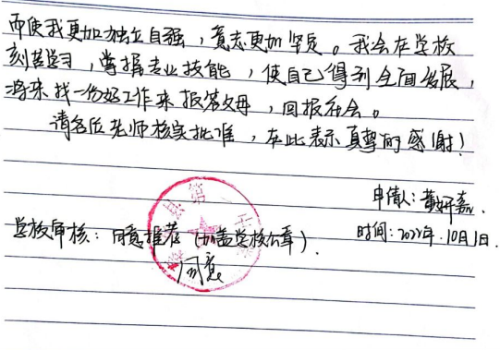 而使我更加独立自强，意志更加坚定。我会在学校
刻苦学习，掌握专业技能，使自己得到全面发展，
将来找一份好工作来报答父母，回报社会。
请各位老师核实批准，在此表示真挚的感谢！
申请人：黄妍嘉
学校审核：同意推荐（加盖学校公章）.
时间：2022年.10月1日.
同意